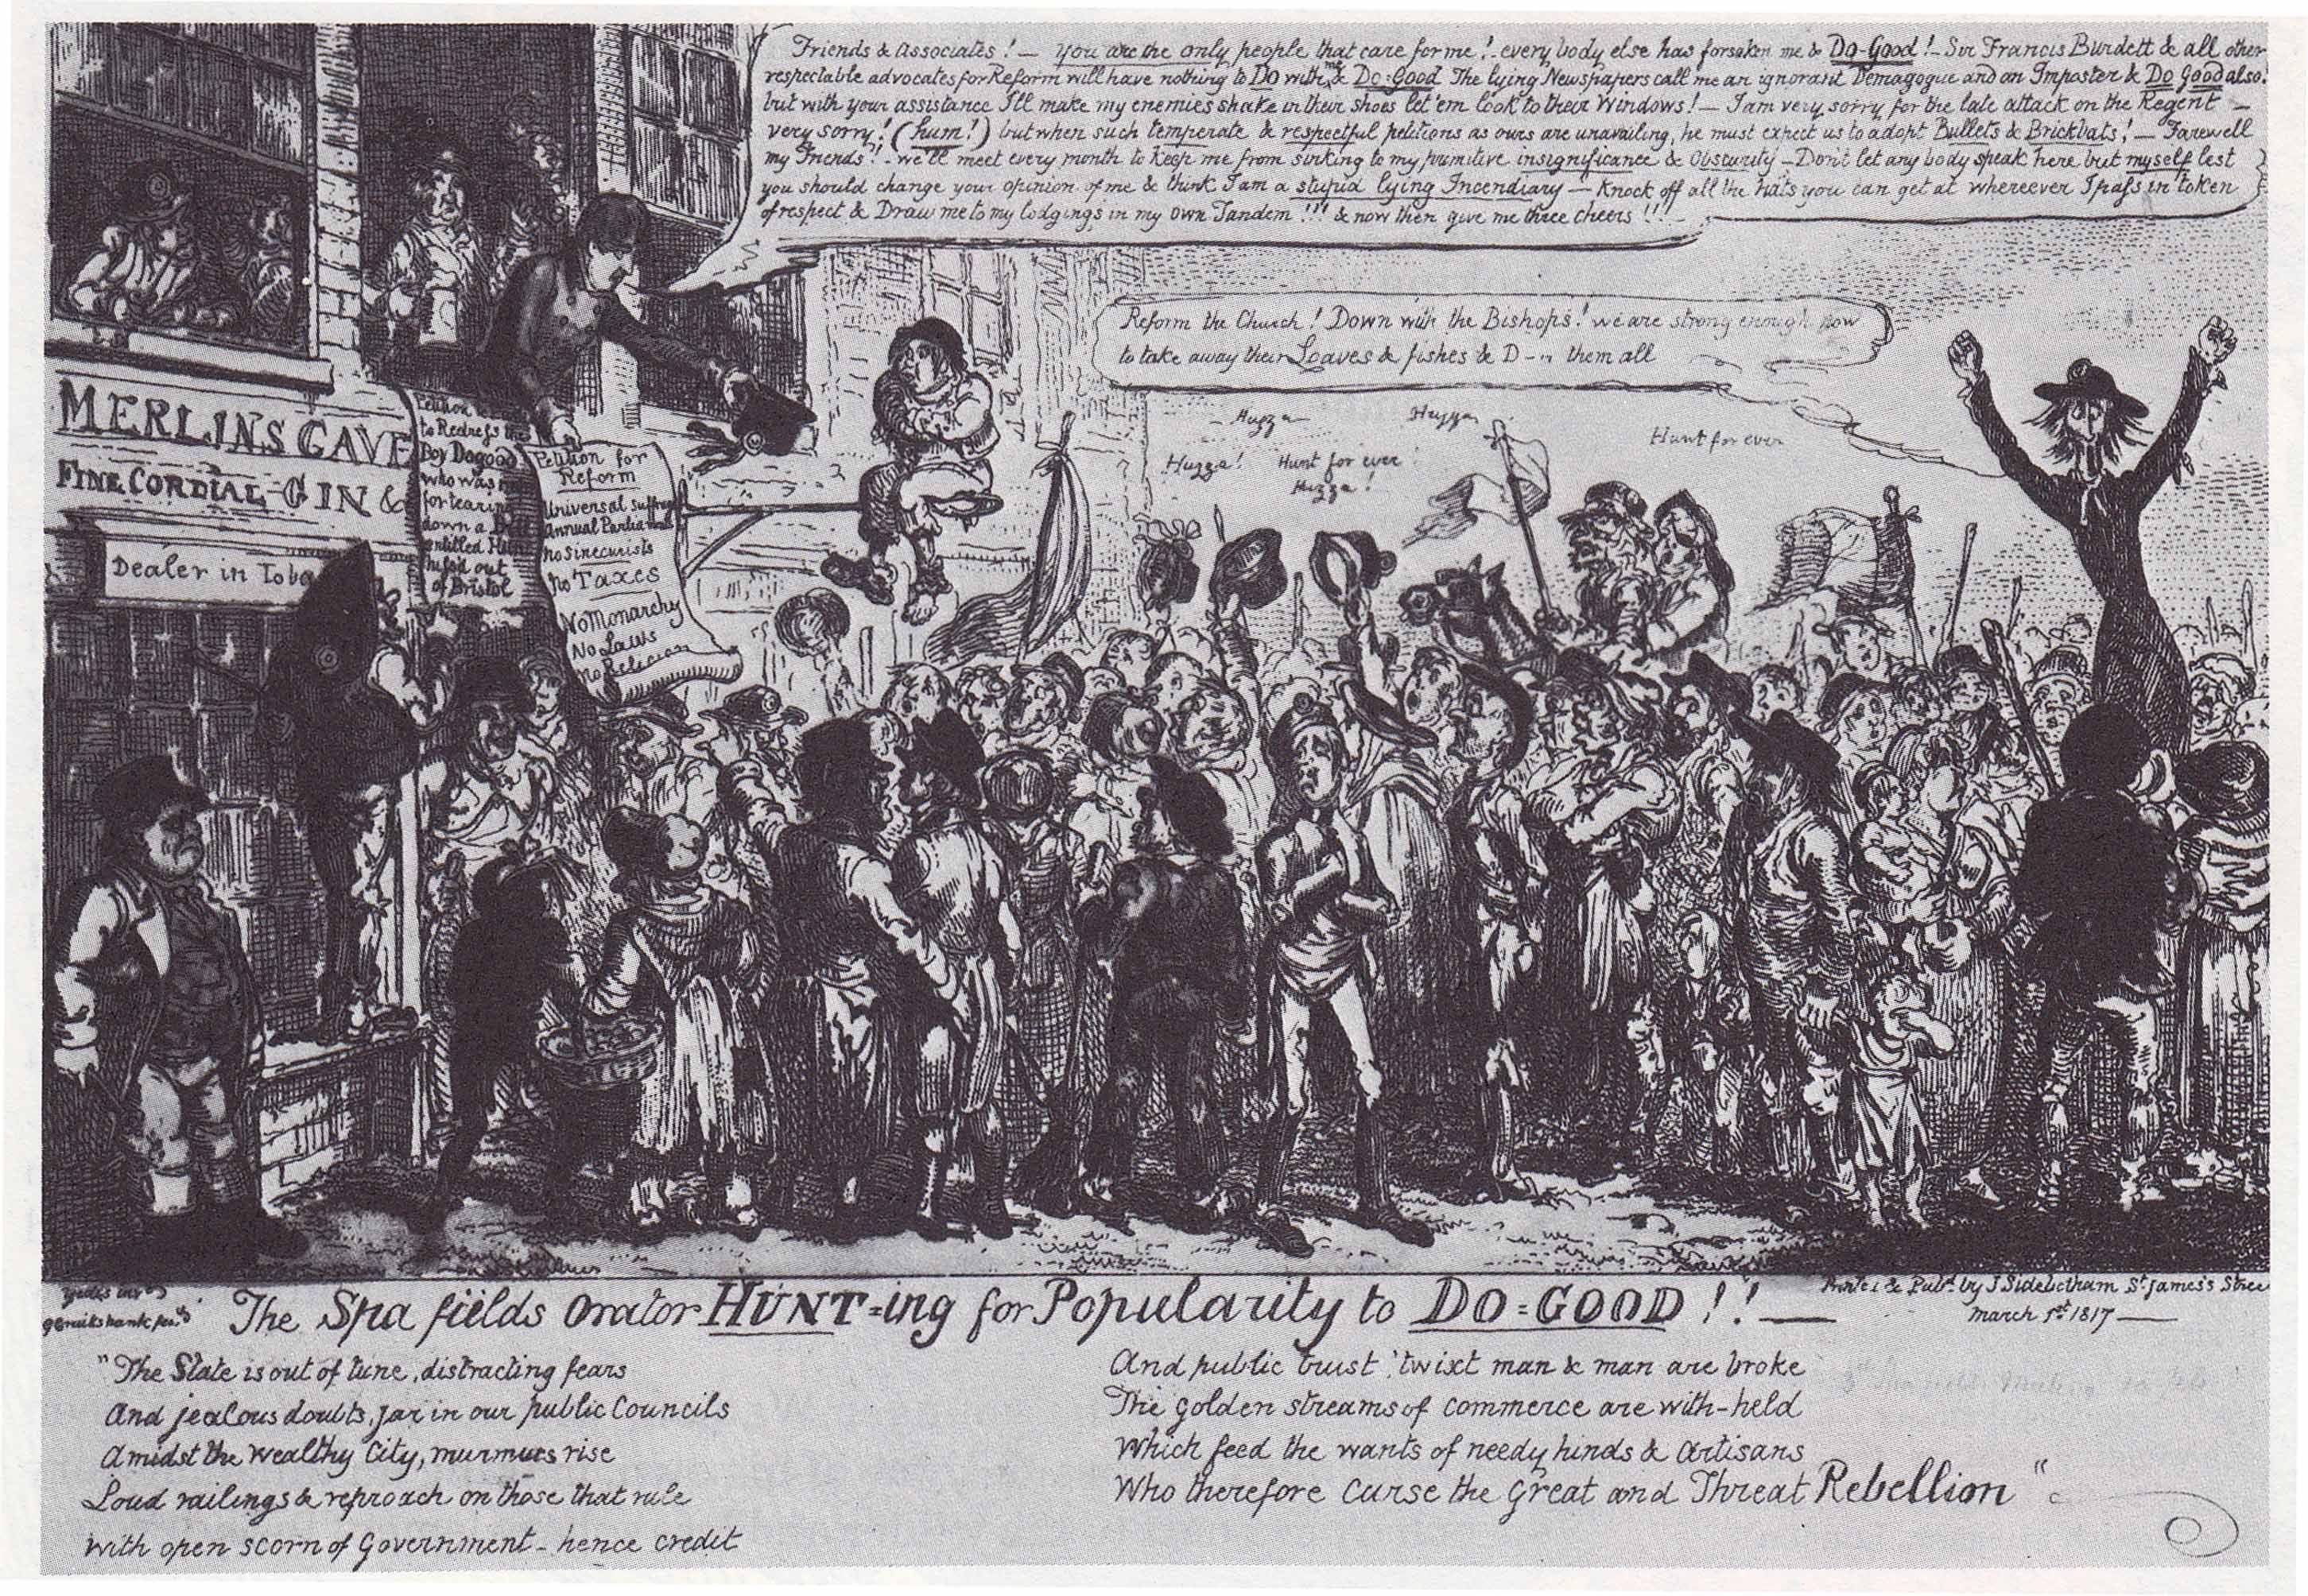 Friends & Associates! — you are the only people that care for me! - every body else has forsaken me & Do-Good! - Sir Francis Burdett & all other
respectable advocates for Reform will have nothing to Do with me & Do-Good The lying Newspapers call me an ignorant Demagogue and an Imposter & Do Good also!
but with your assistance I'll make my enemies shake in their shoes let 'em look to their Windows! — I am very sorry for the late attack on the Regent —
very sorry! (hum!) but when such temperate & respectful petitions as ours are unavailing, he must expect us to adopt Bullets & Brickbats! — Farewell
my Friends! - we'll meet every month to keep me from sinking to my primitive insignificance & Obscurity — Don't let any body speak here but myself lest
you should change your opinion of me & think I am a stupid lying Incendiary — Knock off all the hats you can get at whereever I pass in token
of respect & Draw me to my lodgings in my own Tandem!!! & now then give me three cheers!!!
Reform the Church! Down with the Bishops! we are strong enough now
to take away their Loaves & fishes & D--n them all
Huzza
Huzza
Hunt for ever
Huzza!
Hunt for ever!
Huzza!
MERLINS CAVE
FINE CORDIAL GIN &
Dealer in Toba
Petition
to Redress the
Boy Dogood
who was
for tearing
down a Bill
entitled Hunt
hissed out
of Bristol
Petition for
Reform
Universal Suffrage
Annual Parliaments
No Sinecurists
No Taxes
No Monarchy
No Laws
No Religion
Yedis invd
G Cruikshank fect
The Spa fields Orator HUNT=ing for Popularity to DO=GOOD!! —
Printed & Pubd by J Sidebetham St James's Stree
March 1st 1817 —
"The State is out of tune, distracting fears
And jealous doubts, jar in our public Councils
Amidst the wealthy City, murmurs rise
Loud railings & reproach on those that rule
With open scorn of Government - hence credit
And public trust 'twixt man & man are broke
The golden streams of commerce are with-held
Which feed the wants of needy hinds & artisans
Who therefore Curse the Great and Threat Rebellion"